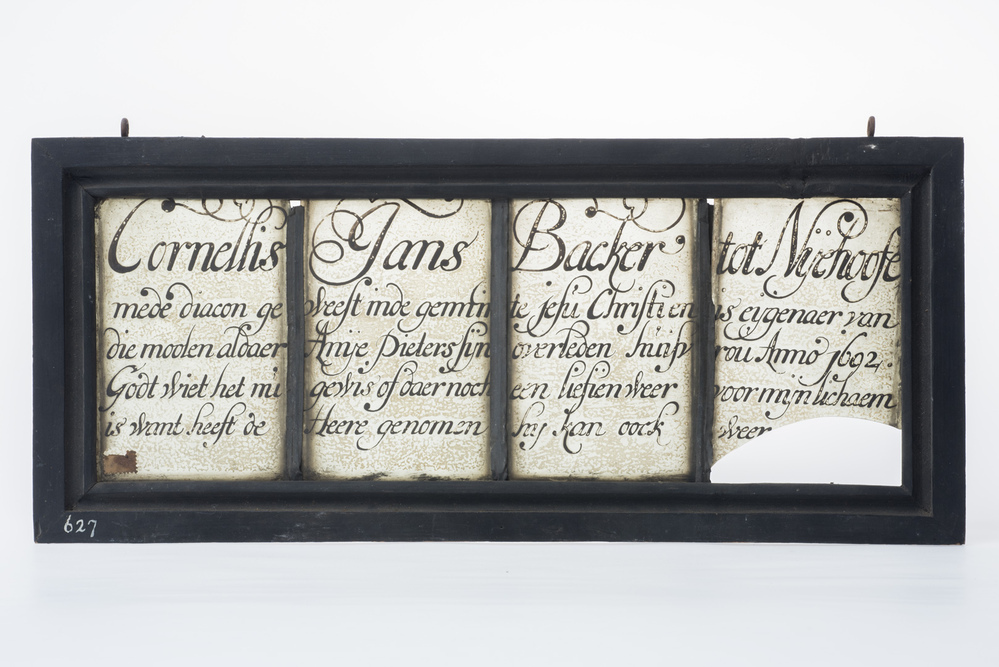 Cornellis Jans Backer tot Nijehoofe
mede diacon geweest inde gemtinte jesu Christi en is eijgenaer van
die moolen aldaer Antje Pieters sijn overleden huijsvrou Anno 1692
Godt wiet het mi gewis of daer noch een liefien weer voor mijn lichaem
is want heeft de Heere genomen hy kan oock weer
627